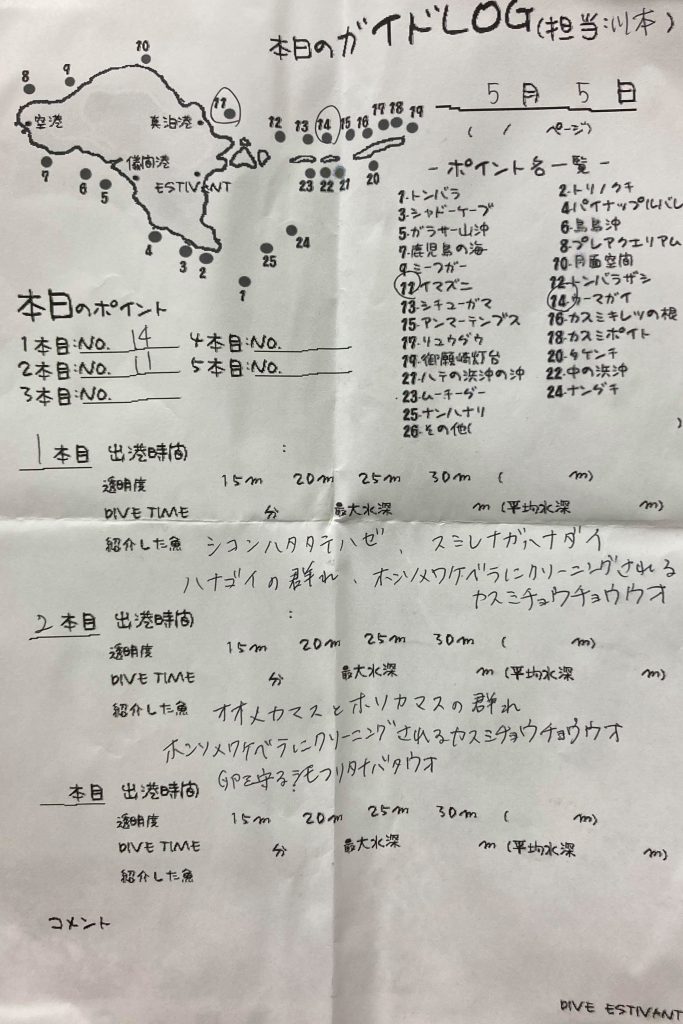 本日のガイドLOG(担当:川本)
5月5日
( / ページ)
10
9
8
11
空港
真泊港
儀間港
ESTIVANT
7
6
5
4
3
2
1
25
24
12
13
14
15
16
17
18
19
23
22
21
20
-ポイント名一覧-
1.トンバラ 2.トリノクチ
3.シャドーケーブ 4.パイナップルバレ
5.ガラサー山沖 6.鳥島沖
7.鹿児島の海 8.プレアクエリアム
9.ミーフガー 10.月面空間
11.イマズニ 12.トンバラザシ
13.シチューガマ 14.ウーマガイ
15.アンマーテンプス 16.カスミキレツの根
17.リュウダウ 18.カスミポイト
19.御願崎灯台 20.タケンチ
21.ハテの浜沖の沖 22.中の浜沖
23.ムーチーダー 24.ナンダキ
25.ナンハナリ
26.その他( )
本日のポイント
1本目:NO. 14 4本目:NO.
2本目:NO. 11 5本目:NO.
3本目:NO.
1本目 出港時間 :
透明度 15m 20m 25m 30m ( m)
DIVE TIME 分 最大水深 m (平均水深 m)
紹介した魚 シコンハタタテハゼ、スミレナガハナダイ
ハナゴイの群れ、ホンソメワケベラにクリーニングされる
カスミチョウチョウウオ
2本目 出港時間 :
透明度 15m 20m 25m 30m ( m)
DIVE TIME 分 最大水深 m (平均水深 m)
紹介した魚 オオメカマスとホソカマスの群れ
ホンソメワケベラにクリーニングされるカスミチョウチョウウオ
本目 出港時間
透明度 15m 20m 25m 30m ( m)
DIVE TIME 分 最大水深 m (平均水深 m)
紹介した魚
コメント
DIVE ESTIVANT